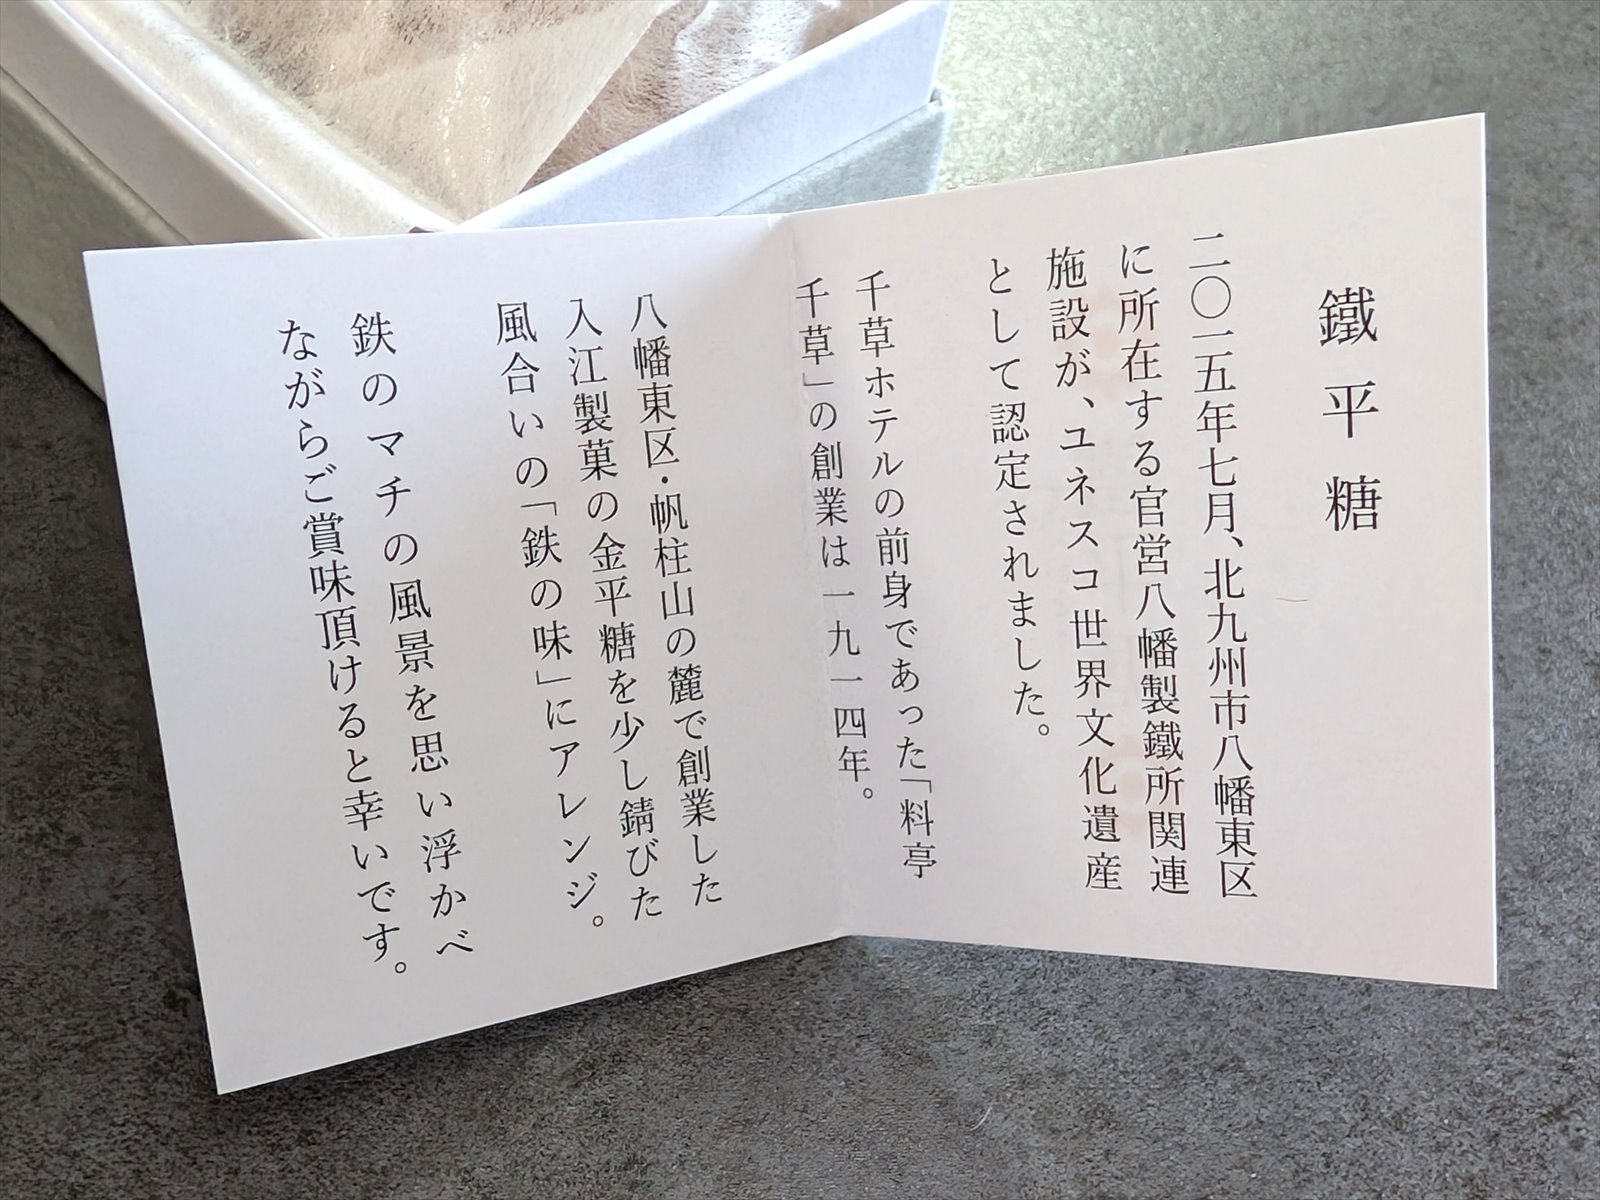 鐵平糖
二〇一五年七月、北九州市八幡東区
に所在する官営八幡製鐵所関連
施設が、ユネスコ世界文化遺産
として認定されました。
千草ホテルの前身であった「料亭
千草」の創業は一九一四年。
八幡東区・帆柱山の麓で創業した
入江製菓の金平糖を少し錆びた
風合いの「鉄の味」にアレンジ。
鉄のマチの風景を思い浮かべ
ながらご賞味頂けると幸いです。